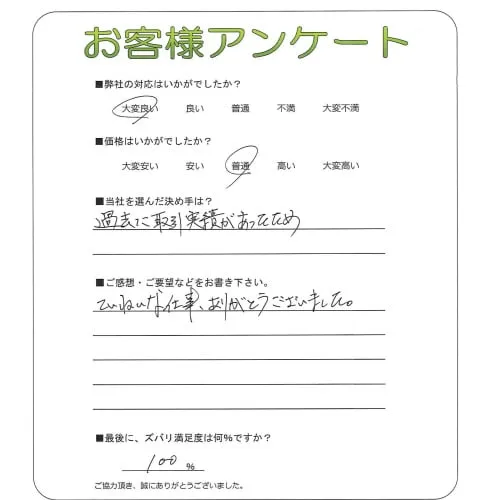 お客様アンケート
■弊社の対応はいかがでしたか？
大変良い 良い 普通 不満 大変不満
■価格はいかがでしたか？
大変安い 安い 普通 高い 大変高い
■当社を選んだ決め手は？
過去に取引実績があったため
■ご感想・ご要望などをお書き下さい。
ていねいな仕事、ありがとうございました。
■最後に、ズバリ満足度は何％ですか？
100 %
ご協力頂き、誠にありがとうございました。